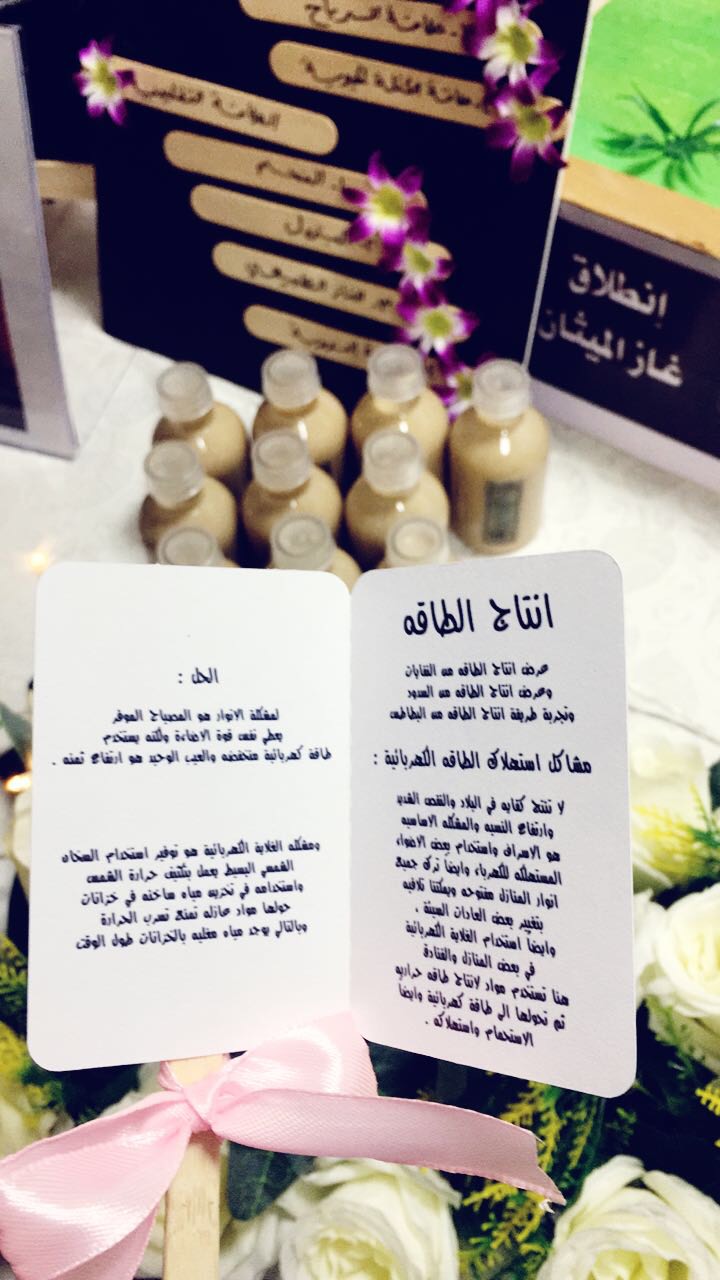 طاقة الرياح
طاقة الكتلة الحيوية
الطاقة التقليدية
الفحم
البترول
الغاز الطبيعي
إنطلاق
غاز الميثان
انتاج الطاقه
عرض انتاج الطاقه من النفايات
وعرض انتاج الطاقه من السدود
وتجربة طريفة انتاج الطاقه من البطاطس
مشاكل استهلاك الطاقه الكهربائية :
لا تنتج كفايه في البلاد والنقص الشديد
وارتفاع النسبه والمشكله الاساسيه
هو الاسراف واستخدام بعض الاضواء
المستهلكه للكهرباء وايضا ترك جميع
انوار المنازل مفتوحه ويمكننا تلافيه
بتغيير بعض العادات السيئة ،
وايضا استخدام الغلاية الكهربائية
في بعض المنازل والفنادق
هنا تستخدم مواد لانتاج طاقه حراريه
ثم تحولها الى طاقة كهربائية وايضا
الاستحمام واستهلاكه .
الحل :
لمشكلة الانوار هو المصباح الموفر
يعطي نفس قوة الاضاءة ولكنه يستخدم
طاقة كهربائية منخفضه والعيب الوحيد هو ارتفاع ثمنه .
ومشكله الغلاية الكهربائية هو توفير استخدام السخان
الشمسي البسيط يعمل بتكثيف حرارة الشمس
واستخدامه في تخزين مياه ساخنه في خزانات
حولها مواد عازله تمنع تسرب الحرارة
وبالتالي يوجد مياه مغليه بالخزانات طول الوقت